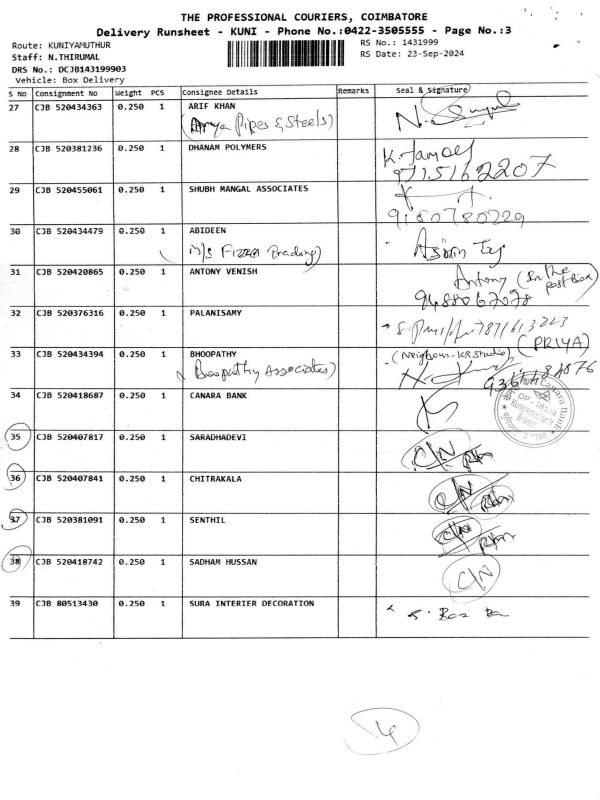 THE PROFESSIONAL COURIERS, COIMBATORE
Delivery Runsheet - KUNI - Phone No.:0422-3505555 - Page No.:3
Route: KUNIYAMUTHUR RS No.: 1431999
Staff: N.THIRUMAL RS Date: 23-Sep-2024
DRS No.: DCJB143199903
Vehicle: Box Delivery
S No Consignment No Weight PCS Consignee Details Remarks Seal & Signature
27 CJB 520434363 0.250 1 ARIF KHAN
(Arya Pipes & Steels)
28 CJB 520381236 0.250 1 DHANAM POLYMERS
9715162207
29 CJB 520455061 0.250 1 SHUBH MANGAL ASSOCIATES
9180780229
30 CJB 520434479 0.250 1 ABIDEEN
M/s Fizza Trading)
31 CJB 520420865 0.250 1 ANTONY VENISH Antony (In the
post Box)
9488067078
32 CJB 520376316 0.250 1 PALANISAMY
7871613223
(PRIYA)
33 CJB 520434394 0.250 1 BHOOPATHY (Neighbour-KR Studio)
(Boopathy Associates)
34 CJB 520418687 0.250 1 CANARA BANK
Canara Bank
35 CJB 520407817 0.250 1 SARADHADEVI C/N
36 CJB 520407841 0.250 1 CHITRAKALA C/N
37 CJB 520381091 0.250 1 SENTHIL C/N
38 CJB 520418742 0.250 1 SADHAM HUSSAN C/N
39 CJB 80513430 0.250 1 SURA INTERIER DECORATION